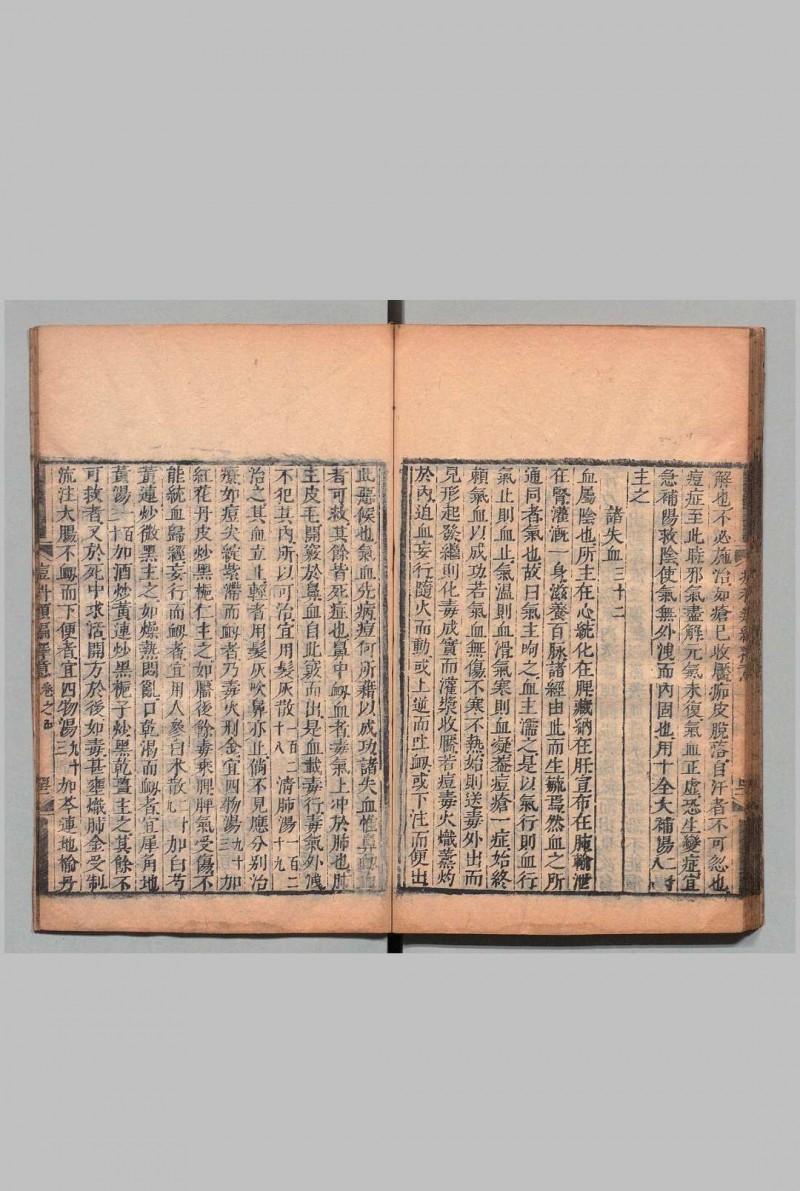 解也不必施治如瘡已收靨痂皮脫落自汗者不可忽也
痘症至此時邪氣盡解元氣未復氣血正虛恐生變症宜
急補陽救陰使氣無外洩而內固也用十全大補湯二十八
主之
諸失血三十二
血屬陰也所主在心統化在脾藏納在肝宣布在肺輸泄
在腎灌溉一身滋養百脉諸經由此而生毓焉然血之所
通同者氣也故曰氣主呴之血主濡之是以氣行則血行
氣止則血止氣溫則血滑氣寒則血凝葢痘瘡一症始終
賴氣血以成功若氣血無傷不寒不熱始則送毒外出而
見形起發繼則化毒成實而灌漿收靨若痘毒火熾蒸灼
於內迫血妄行隨火而動或上逆而吐衂或下注而便出
此惡候也氣血先病痘何所藉以成功諸失血惟鼻
者可救其餘皆死症也鼻中衂血者毒氣上冲於肺也肺
主皮毛開竅於鼻血自此竅而出是血載毒行毒氣外洩
不犯其內所以可治宜用髮灰散一百二十八清肺湯一百二十九
治之其血立止輕者用髮灰吹鼻亦止倘不見應分別治
療如痘尖綻紫滯而衂者乃毒火刑金宜四物湯九十三加
紅花丹皮炒黑梔仁主之如靨後餘毒乘脾脾氣受傷不
能統血歸經妄行而衂者宜用人參白朮散 加白芍
黃連炒微黑主之如燥熱悶亂口乾渴而衂者宜犀角地
黃湯一百二十加酒炒黃連炒黑梔子炒黑乾薑主之其餘不
可救者又於死中求活開方於後如毒甚壅熾肺金受制
流注大腸不衂而下便者宜四物湯九十三加芩連地榆丹
痘科類編釋意 卷之四